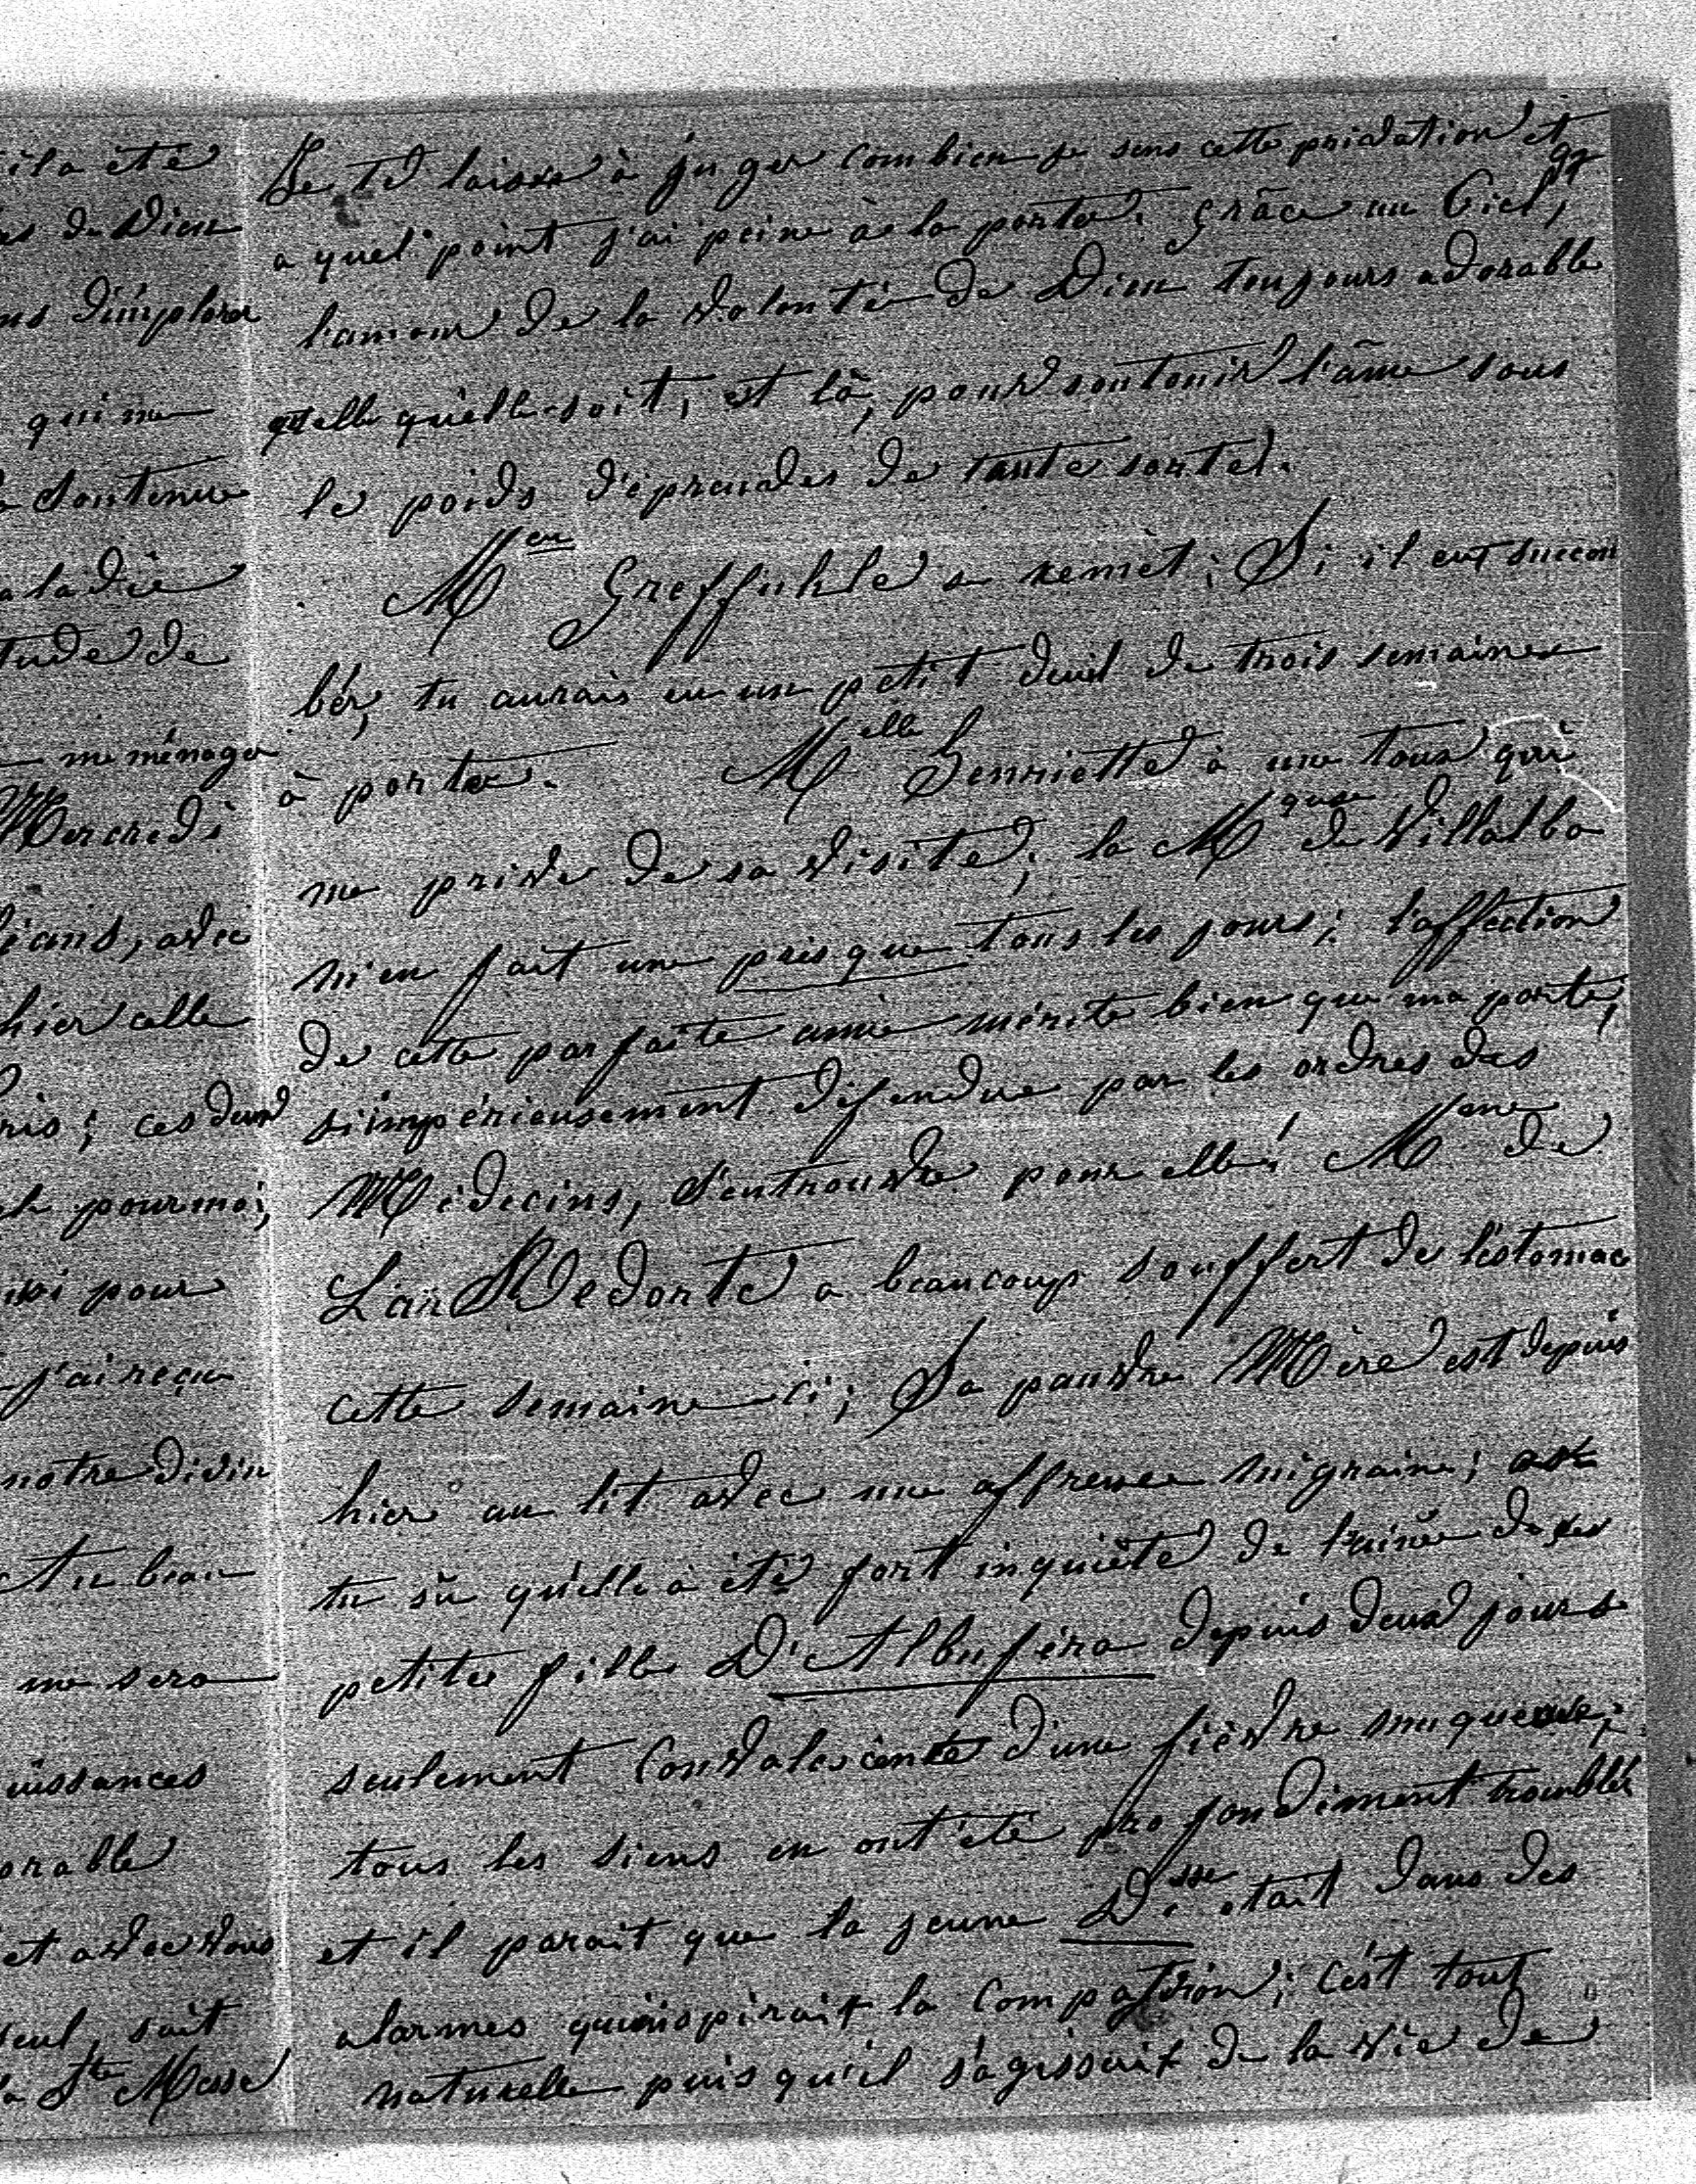 ila été
as de Dieu
ns d'implorer
qui me
soutenue
aladie
tude de
me ménager
Mercredi
éans, avec
hier celle
ris; ces deux
pour moi;
pour
j'ai reçu
notre divin
me sera
uissances
orable
et avec vous
seul, soit
la Ste Messe
Je te laisse à juger combien je sens cette privation et
97
a quel point j'ai peine à la porter. Grâce au Ciel,
l'amour de la volonté de Dieu toujours adorable
quelle qu'elle soit, est là, pour soutenir l'âme sous
le poids d'épreuves de toute sorte.
Greffuhle se remèt; Si il eut succom
bér, tu aurais eu un petit deuil de trois semaines
à porter. Melle Henriette à une toux qui
me prive de sa visite; la Mquse de Villalba
m'en fait une presque tous les jours; l'affection
de cette parfaite amie mérite bien que ma porte,
si impérieusement défendue par les ordres des
Médecins, s'entrouvre pour elle! Mme de
Lar Redorte a beaucoup souffert de l'estomac
cette semaine-ci; Sa pauvre Mère est depuis
hier au lit avec une affreuse migraine; as
tu sû qu'elle a été fort inquiète de l'ainée de ses
petites filles D'Albuféra depuis deux jours
seulement Convalescente d'une fièvre muqueuse;
tous les siens en ont été profondément troublés
et il parait que la jeune Dsse etait dans des
alarmes qui inspirait la compassion; c'est tout
naturelle puis qu'il s'agissait de la vie de